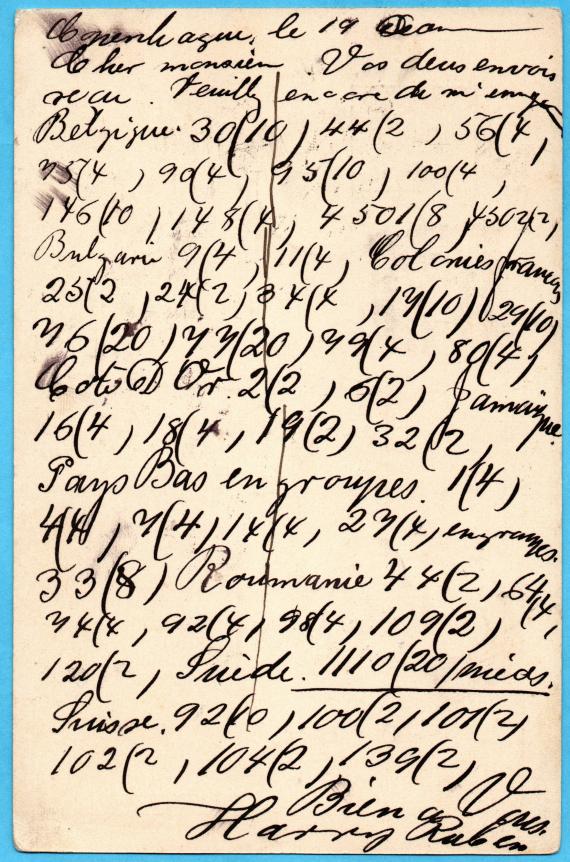 Copenhague, le 19
Cher monsieur Vos deus envois
recu. Veuillz encore de m'envoyer
Belgique. 30(10), 44(2, 56(4,
75(4, 90(4, 95(10, 100(4,
146(10, 148(4, 4501(8, 4502(2,
Bulgarie 9(4, 11(4, Colonies francais
25(2, 24(2, 34(4, 17(10) 29(10)
76(20, 77(20, 79(4, 80(4,
Cote D'Or. 2(2, 6(2, Jamaique
16(4, 18(4, 19(2) 32(2,
Pays Bas en groupes. 1(4)
4(4, 7(4), 14(4, 27(4, en groupes.
33(8) Roumanie 44(2, 64(4,
74(4, 92(4, 98(4, 109(2,
120(2, Suède. 1110(20/mièds.
Suisse. 92(10, 100(2, 101(2,
102(2, 104(2, 139(2,
Bien a Vous.
Harry Ruben